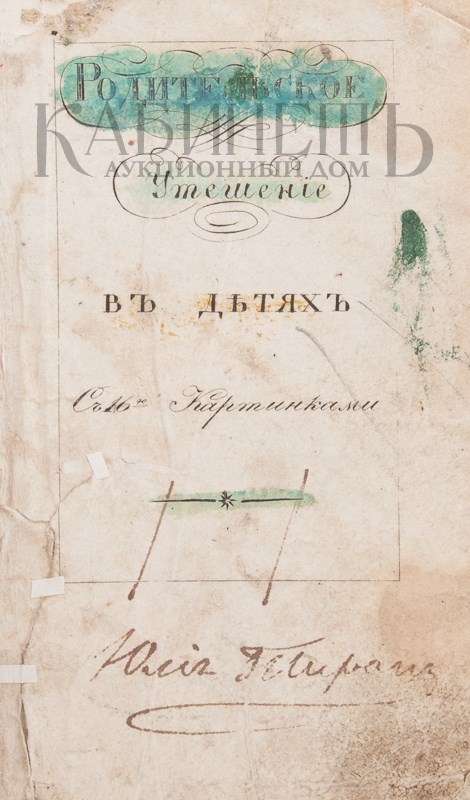 Родительское
КАБИНЕТЪ
АУКЦИОННЫЙ ДОМ
Утешенiе
ВЪ ДѢТЯХЪ
Съ 16ю Картинками
Юлiя